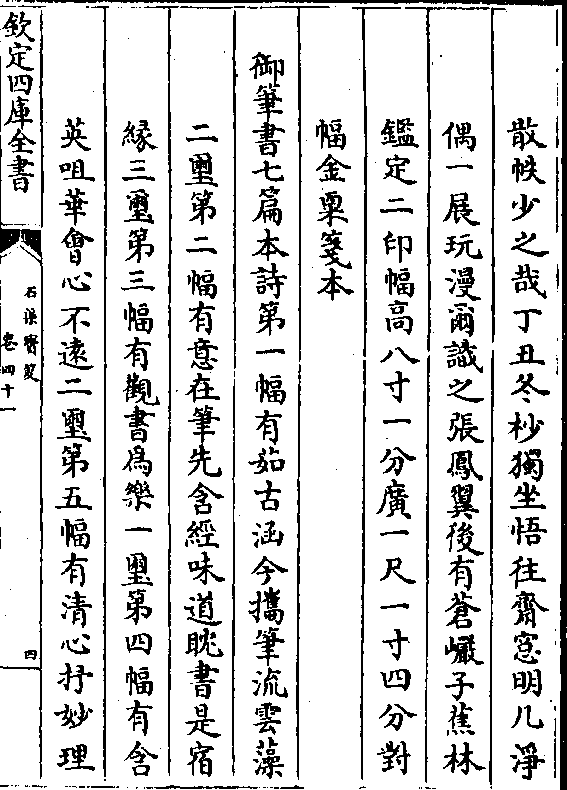 散帙少之哉丁丑冬杪獨坐悟往齋窓明几淨
偶一展玩漫爾識之張鳳翼後有蒼巖子蕉林
鑑定二印幅高八寸一分廣一尺一寸四分對
幅金粟箋本
御筆書七篇本詩第一幅有茹古涵今攜筆流雲藻
二璽第二幅有意在筆先含經味道眈書是宿
緣三璽第三幅有觀書為樂一璽第四幅有含
英咀華會心不遠二璽第五幅有清心抒妙理
欽定四庫全書
石渠寳笈
卷四十一
四